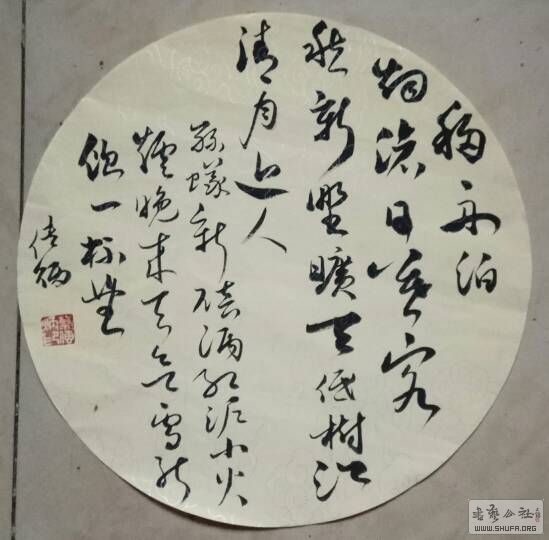 移舟泊
烟渚日暮客
愁新野曠天低树江
清月近人
綠蟻新醅酒红泥小火
爐晚来天欲雪能
飲一杯無
書藝公社
WWW.SHUFA.ORG